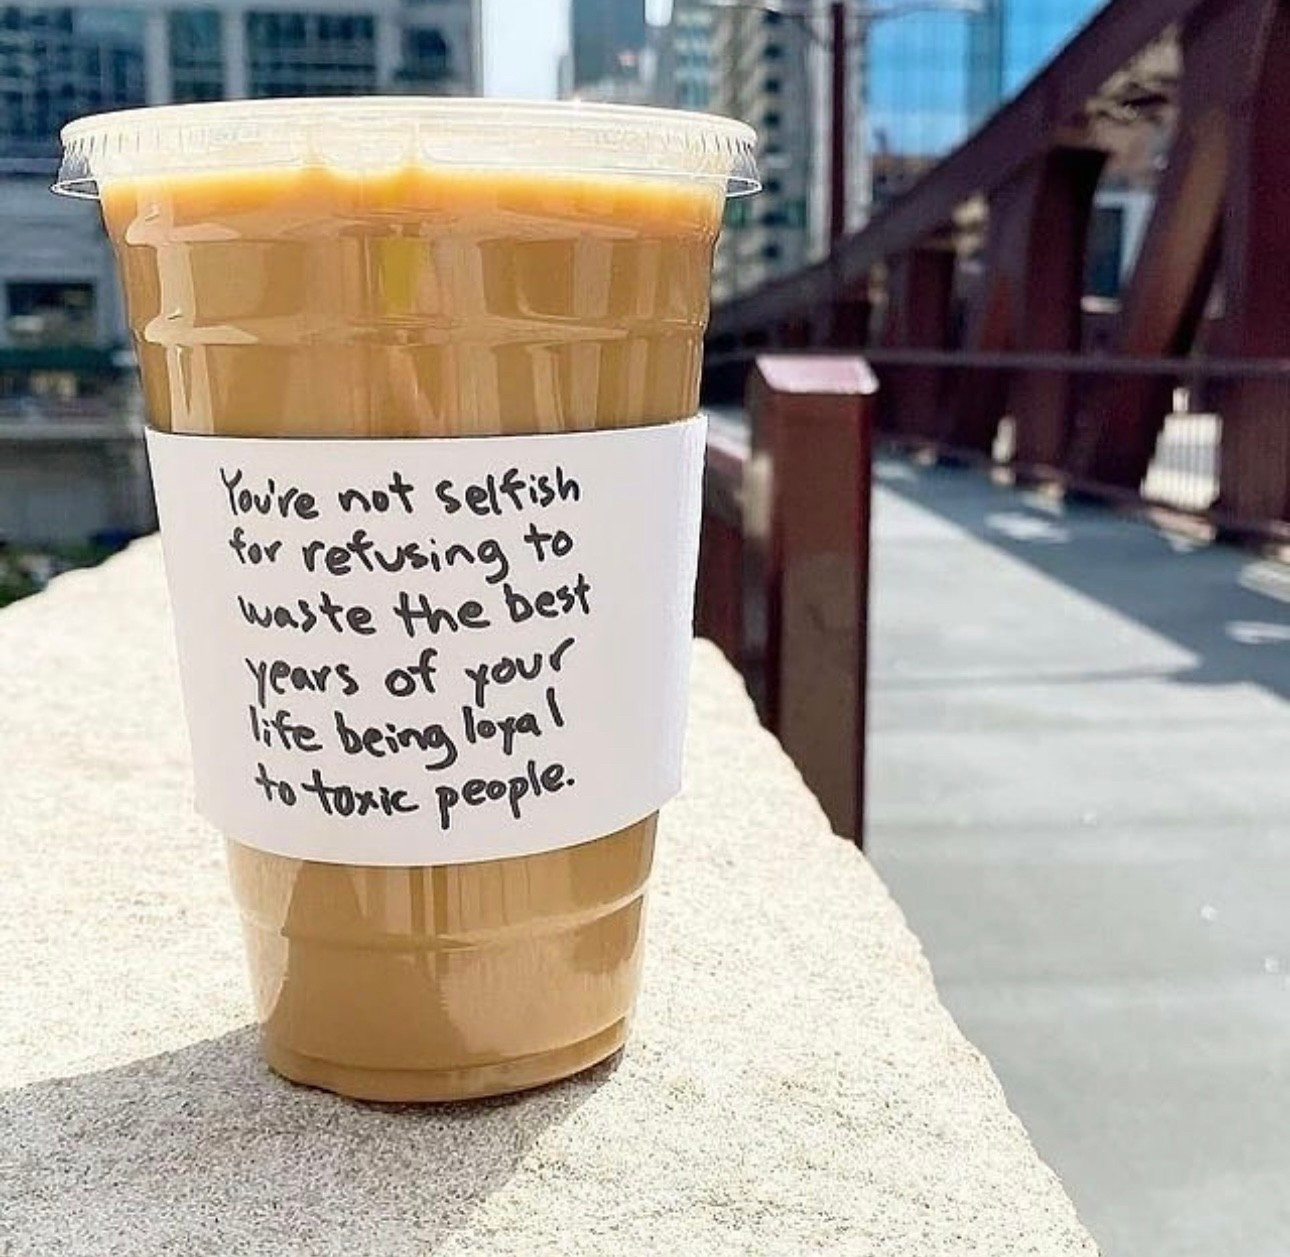 You're not selfish
for refusing to
waste the best
years of your
life being loyal
to toxic people.